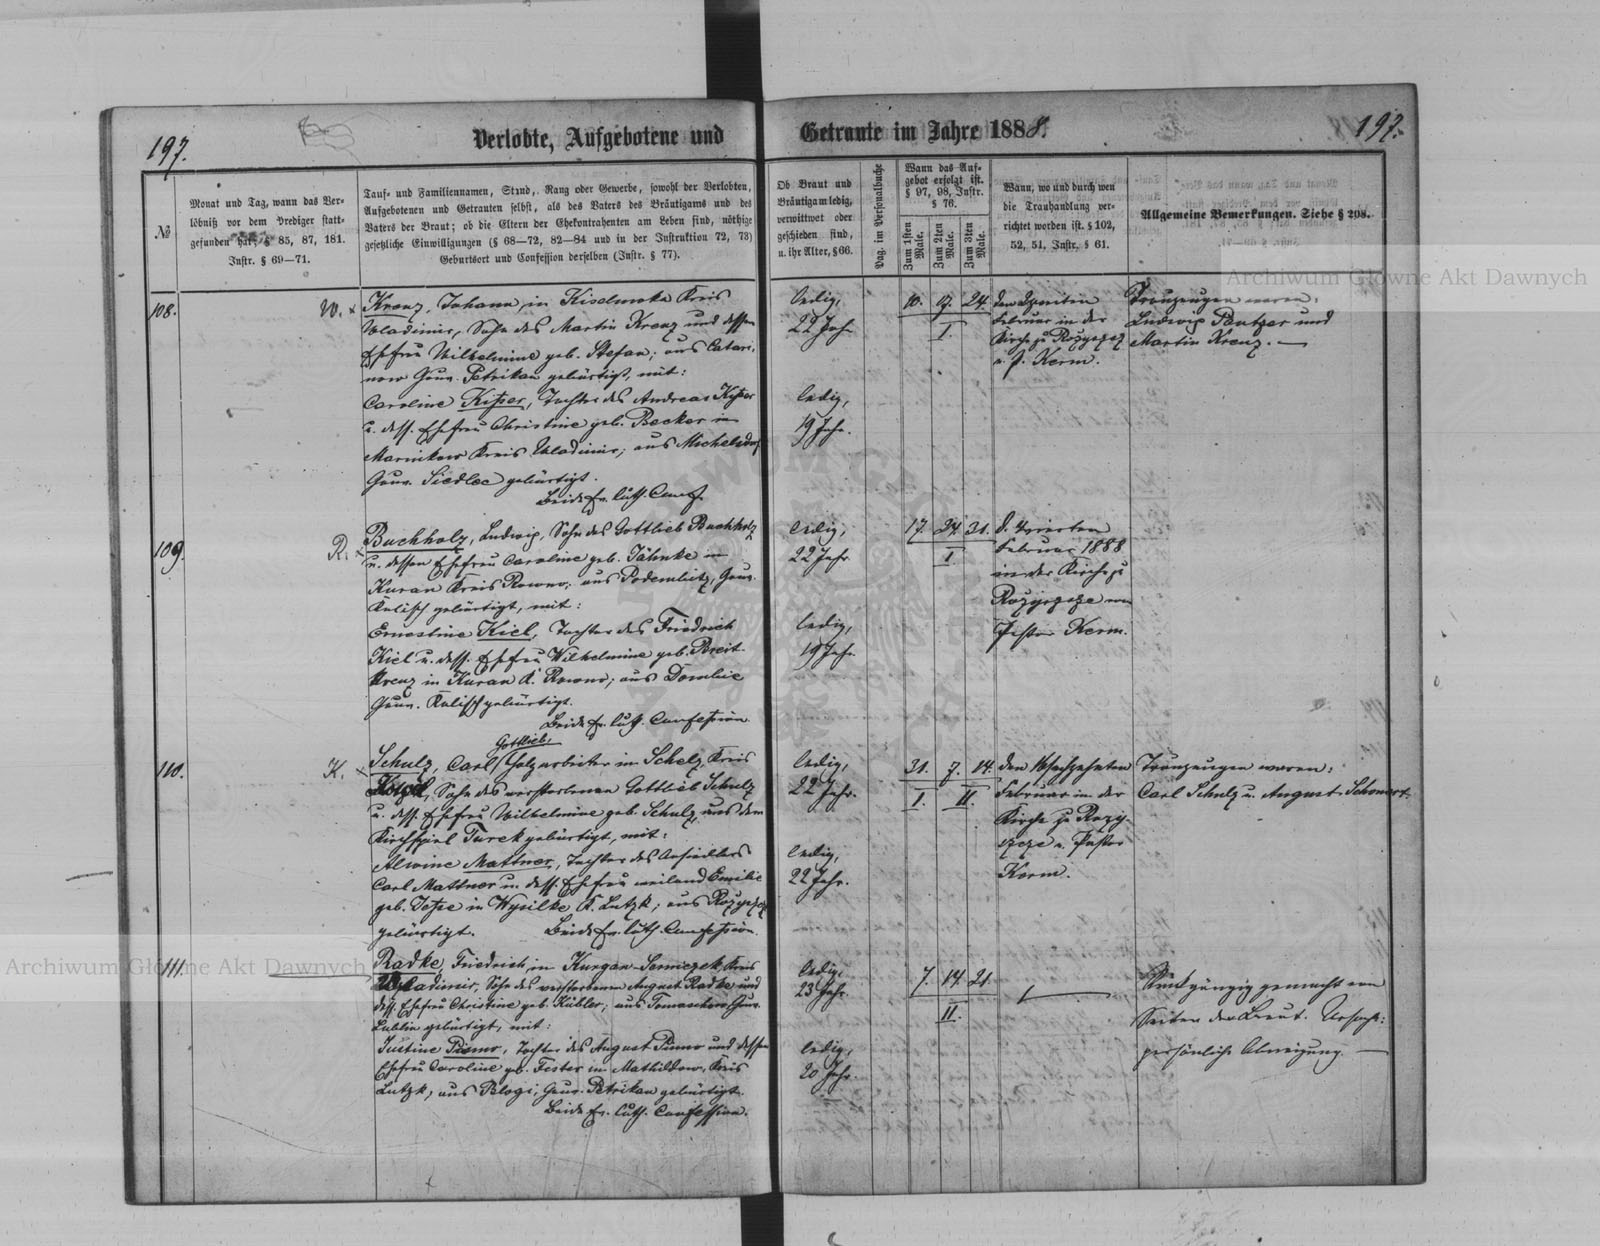 197.
Verlobte, Aufgebotene und
Getraute im Jahre 1888.
197.
№
Monat und Tag, wann das Ver-
löbniß vor dem Prediger statt-
gefunden hat, § 85, 87, 181.
Instr. § 69—71.
Tauf- und Familiennamen, Stand, Rang oder Gewerbe, sowohl der Verlobten,
Aufgebotenen und Getrauten selbst, als des Vaters des Bräutigams und des
Vaters der Braut; ob die Eltern der Ehekontrahenten am Leben sind, nöthige
gesetzliche Einwilligungen (§ 68—72, 82—84 und in der Instruktion 72, 73)
Geburtsort und Confession derselben (Instr. § 77).
Ob Braut und
Bräutigam ledig,
verwittwet oder
geschieden sind,
u. ihr Alter, § 66.
Pag. im Personalbuche
Wann das Auf-
gebot erfolgt ist.
§ 97, 98, Instr.
§ 76.
Zum 1sten
Male.
Zum 2ten
Male.
Zum 3ten
Male.
Wann, wo und durch wen
die Trauhandlung ver-
richtet worden ist. § 102,
52, 51, Instr. § 61.
Allgemeine Bemerkungen. Siehe § 208.
Archiwum Główne Akt Dawnych
108.
W. x
Krenz, Johann, in Kiselmoka Kreis
Wladimir, Sohn des Martin Krenz und dessen
Ehefrau Wilhelmine geb. Stefan; aus Catari-
now Gouv. Petrikau gebürtig, mit:
Caroline Kitzer, Tochter des Andreas Kitzer
u. dess. Ehefrau Christine geb. Becker in
Marinkow Kreis Wladimir; aus Michelsdorf
Gouv. Siedlec gebürtig.
Beide ev. luth. Conf.
ledig,
22 Jahr
ledig,
19 Jahr.
10. 17. 24.
I.
den Zweiten
Februar in der
Kirche zu Rozyszcz
v. P. Kerm.
Trauzeugen waren:
Ludwig Pantzer und
Martin Krenz. —
109.
R. x
Buchholz, Ludwig, Sohn des Gottlieb Buchholz
u. dessen Ehefrau Caroline geb. Jähnke in
Kuran Kreis Rowno; aus Podembitz, Gouv.
Kalisch gebürtig, mit:
Ernestine Kiel, Tochter des Friedrich
Kiel u. dess. Ehefrau Wilhelmine geb. Breit-
kreuz in Kuran K. Rowno; aus Dombie
Gouv. Kalisch gebürtig.
Beide ev. luth. Confession
ledig,
22 Jahr
ledig,
19 Jahr.
17. 24. 31.
I.
d. Vierten
Februar 1888
in der Kirche zu
Rozyszcze von
Pastor Kerm.
110.
K. x
Gottlieb,
Schulz, Carl Holzarbeiter in Schelz, Kreis
Kowel, Sohn des verstorbenen Gottlieb Schulz
u. dess. Ehefrau Wilhelmine geb. Schulz, aus dem
Kirchspiel Turek gebürtig, mit:
Alwine Mattner, Tochter des Ansiedlers
Carl Mattner u. dess. Ehefrau weiland Emilie
geb. Jesse in Wysilke K. Lutzk; aus Rozyszcz
gebürtig. Beide ev. luth. Confession.
ledig,
22 Jahr.
ledig,
22 Jahr.
31. 7. 14.
I. II.
den 16 sechzehnten
Februar in der
Kirche zu Rozy-
szcze v. Pastor
Kerm.
Trauzeugen waren:
Carl Schulz u. August Schonert.
111.
Archiwum Główne Akt Dawnych
Radke, Friedrich in Kurgan-Semiczek, Kreis
Wladimir, Sohn des verstorbenen August Radke und
dess. Ehefrau Christine geb. Kübler; aus Tomaschow, Gouv.
Lublin gebürtig, mit:
Justine Pismo, Tochter des August Pismo und dessen
Ehefrau Caroline geb. Fester in Mathildow, Kreis
Lutzk; aus Blogi, Gouv. Petrikau gebürtig.
Beide ev. luth. Confession.
ledig,
23 Jahr.
ledig,
20 Jahr.
7. 14. 21.
II.
Rückgängig gemacht von
Seiten der Braut. Ursache:
persönliche Abneigung. —